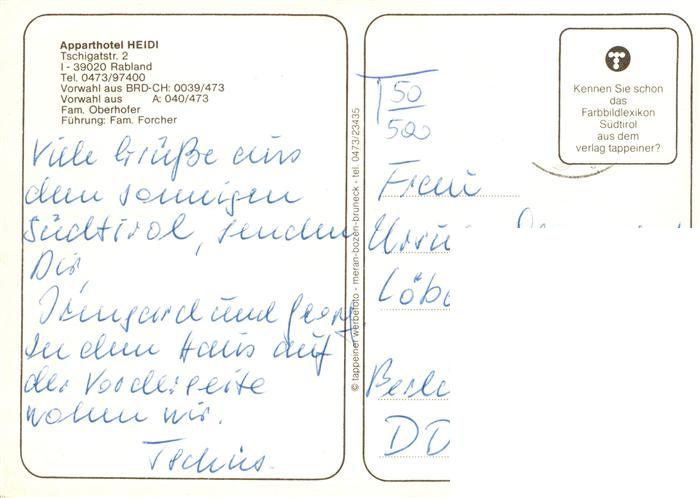 Apparthotel HEIDI
Tschigatstr. 2
I - 39020 Rabland
Tel. 0473/97400
Vorwahl aus BRD-CH: 0039/473
Vorwahl aus A: 040/473
Fam. Oberhofer
Führung: Fam. Forcher
Viele Grüße aus
dem sonnigen
Südtirol, senden
Dir,
Irmgard und Georg
In dem Haus auf
der Vorderseite
wohnen wir.
Tschüs.
© tappeiner werbefoto - meran-bozen-bruneck - tel. 0473/23435
Kennen Sie schon
das
Farbbildlexikon
Südtirol
aus dem
verlag tappeiner?
T 50
500
Frau